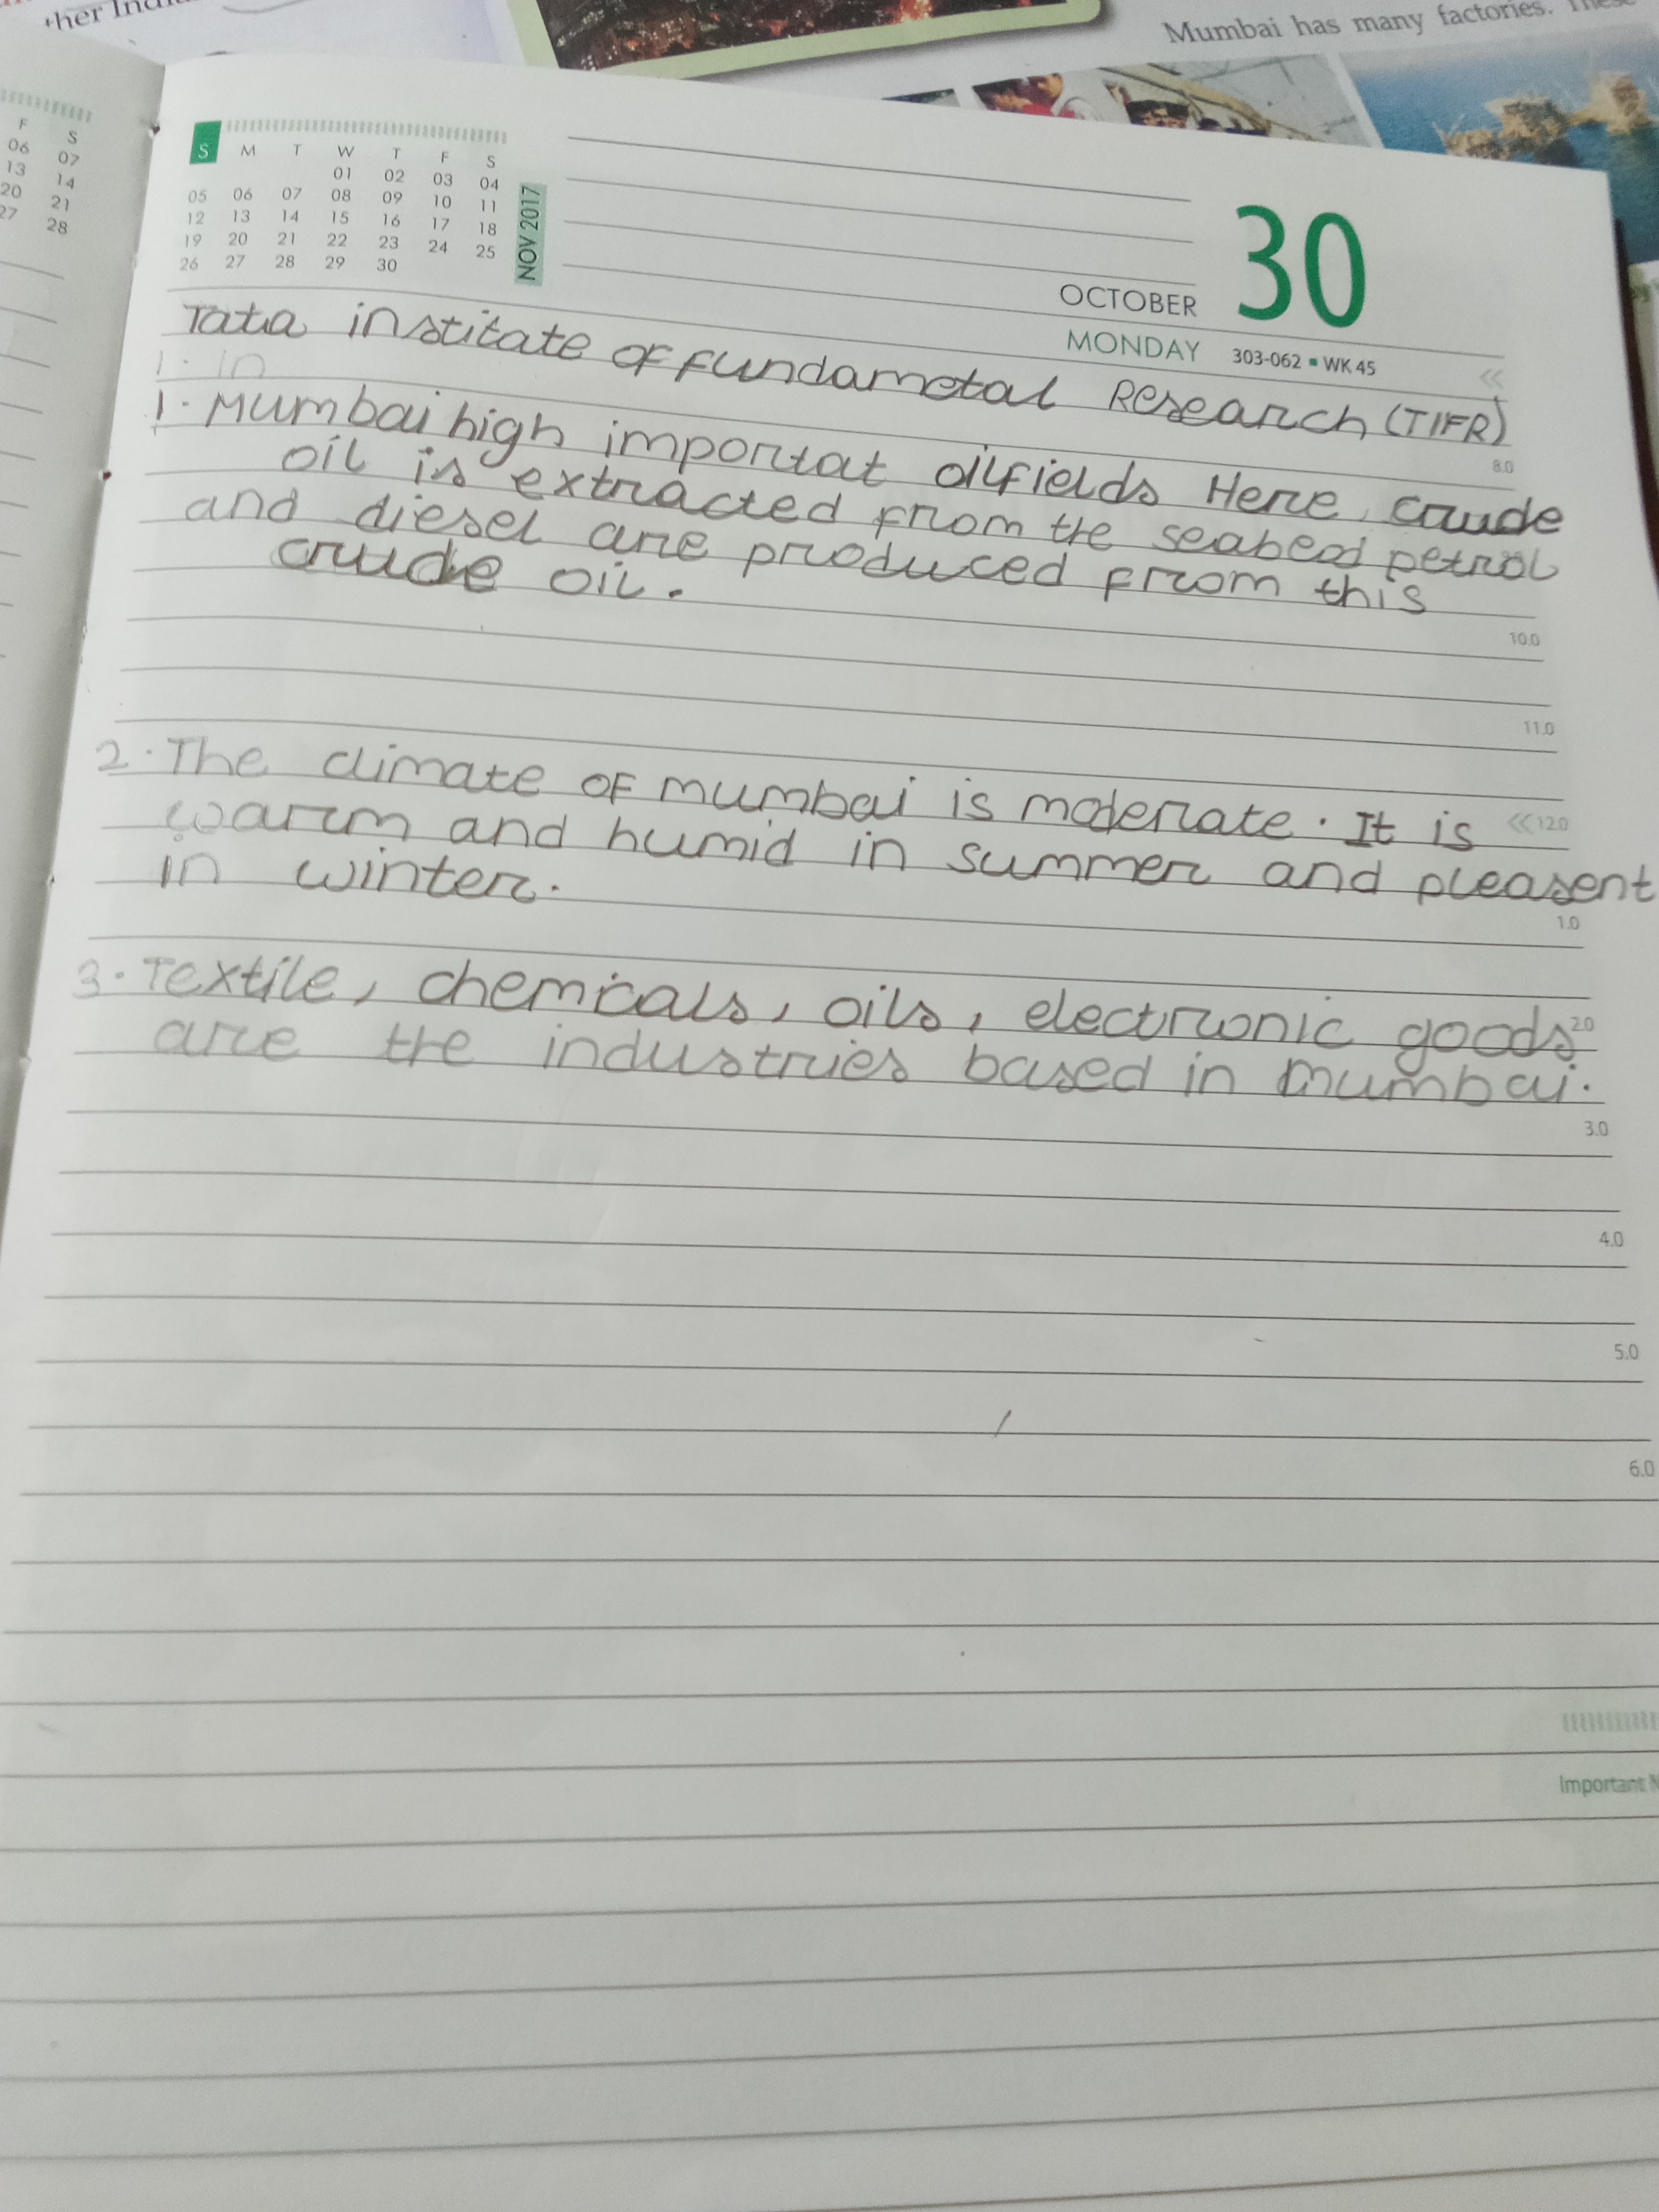 Mumbai has many factories.
F S
06 07
13 14
20 21
27 28
S M T W T F S
01 02 03 04
05 06 07 08 09 10 11
12 13 14 15 16 17 18
19 20 21 22 23 24 25
26 27 28 29 30
NOV 2017
30
OCTOBER
MONDAY 303-062 ▪ WK 45
Tata institate of fundametal Research (TIFR)
1. in
1. Mumbai high importat oilfields Here, crude
oil is extracted from the seabead petrol
and diesel are produced from this
crude oil.
8.0
10.0
11.0
2. The climate of mumbai is moderate. It is
<<12.0
warm and humid in summer and pleasent
in winter.
1.0
3. Textile, chemicals, oils, electronic goods
2.0
are the industries based in mumbai.
3.0
4.0
5.0
6.0
Important